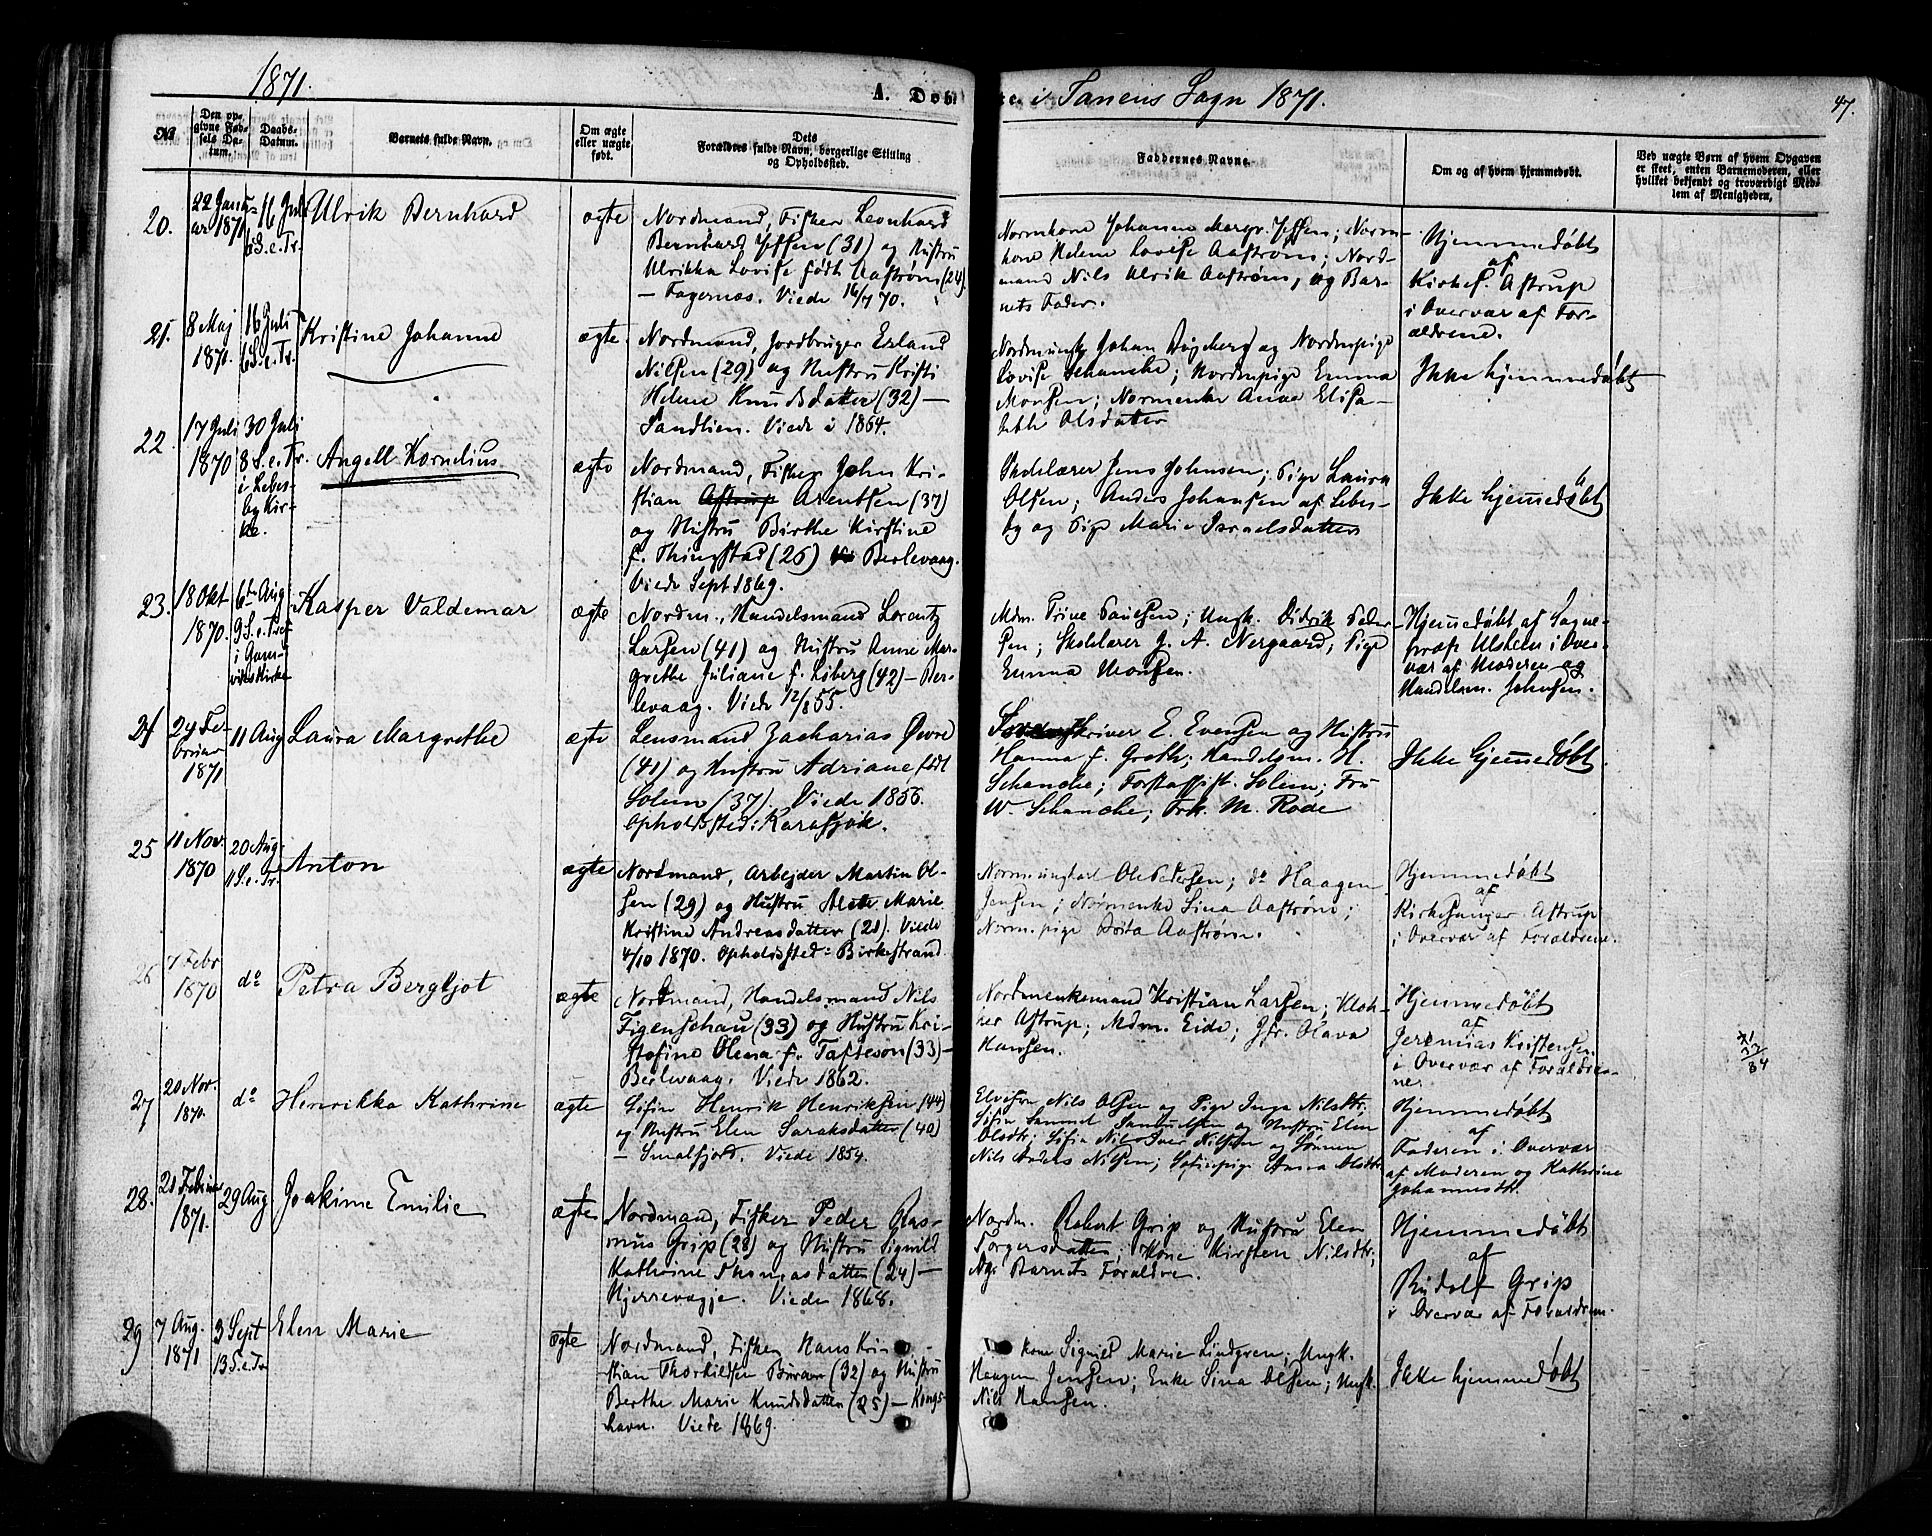 1871.
A. Døbte i Tanens Sogn 1871.
47.
No
Den opgivne Fødsels Datum.
Daabs-Datum.
Barnets fulde Navn.
Om ægte eller uægte født.
Dets Forældres fulde Navn, borgerlige Stilling og Opholdssted.
Faddernes Navne.
Om og af hvem hjemmedøbt.
Ved uægte Børn af hvem Opgaven er skeet, enten Barnemoderen, eller hvilket bekjendt og troværdigt Medlem af Menigheden.
20.
22 Janu-
ar 1871
16 Juli
6 S. e. Tr.
Ulrik Bernhard
ægte
Nordmand, Fisker Leonhard
Bernhard Jessen (31) og Hustru
Ulrikka Lovise født Aastrøm (24).
– Fagernæs. Viede 16/7 70.
Normkone Johanna Margr. Jessen; Norm-
kone Helene Lovise Aastrøm; Nord-
mand Nils Ulrik Aastrøm, og Bar-
nets Fader.
Hjemmedøbt
af
Kirkes. Astrup
i Overvær af For-
ældrene.
21.
8 Maj
1871.
16 Juli
6 S. e. Tr.
Kristine Johanne
ægte
Nordmand, Jordbruger Erland
Nilsen (29) og Hustru Kristi
Helene Knudsdatter (32) –
Sandlien. Viede i 1864.
Johan og Nordmpige
Lovise Schanche; Nordmpige Emma
Monsen; Normenke Anna Elisa-
beth Olsdatter
Ikke hjemmedøbt
22.
17 Juli
1870
30 Juli
8 S. e. Tr.
i Lebes-
by Kir-
ke.
Angell Kornelius
ægte
Nordmand, Fisker John Kri-
stian Arentsen (37)
og Hustru Birthe Kirstine
f. Thingstad (26) Berlevaag.
Viede Sept 1869.
Skolelærer Jens Johnsen; Pige Laura
Olsen; Anders Johansen af Lebes-
by og Pige Marie Israelsdatter
Ikke hjemmedøbt
23.
18 Okt
1870.
6te Aug
9 S. e. Tref
i Gam-
viks Kirke
Kasper Valdemar
ægte
Nordm., Handelsmand Lorentz
Larsen (41) og Hustru Anne Mar-
grethe Juliane f. Loberg (42) – Ber-
levaag. Viede 12/8 55.
Mdm. Trine Paulsen; Ungk. Didrik Peder-
sen; Skolelærer J. A. Nergaard; Pige
Emma Monsen.
Hjemmedøbt af Sogne-
præst i Over-
vær af Moderen og
Handelsm. Johnsen.
24
24 Fe-
bruar
1871
11 Aug
Laura Margrethe
ægte
Lensmand Zacharias Øvre
(41) og Hustru Adriane født
Solem (37). Viede 1856.
Opholdssted: Karasjok.
Sorenskriver E. Evensen og Hustru
Hanna f. Groth; Handelsm. H.
Schanche; Forstassist. Solem; Fru
W. Schanche; Frk. M. Rode
Ikke hjemmedøbt.
25
11 Nov.
1870
20 Aug
11 S. e. Tr.
Anton
ægte
Nordmand, Arbejder Martin Ol-
sen (29) og Hustru Marie
Kristine Andreasdatter (21). Viede
4/10 1870. Opholdssted: Birkestrand
Normungkarl Ole Pedersen; do Haagen
Jensen; Normenke Sina Aastrøm;
Norm.pige Aastrøm.
Hjemmedøbt
af
Kirkesanger Astrup
i Overvær af Forældrene.
26
7 Febr
1870
do
Petra Bergljot
ægte
Nordmand, Handelsmand Nils
Figenschau (33) og Hustru Kri-
stofine Olena f. Tafteson (33) –
Berlevaag. Viede 1862.
Nordmenkemand Kristian Larsen; Klok-
ker Astrup; Mdm. Eide; Jfr. Olava
Hansen.
Hjemmedøbt
af
Jeremias Kristensen
i Overvær af Forældre-
ne.
27
20 Nov.
1870.
do
Henrikka Kathrine
ægte
Søfin Henrik Henriksen (44)
og Hustru Elen Saraksdatter (40)
– Smalfjord. Viede 1854.
Elvefin Nils Olsen og Pige Inga Nilsdtr.
Søfin Sammel Samuelsen og Hustru Elen
Olsdtr; Søfin Nils Iver Nilsen og Sønnen
Nils Anders Nilsen; Søfinpige Anna Olsdtr
Hjemmedøbt
af
Faderen i Overvær
af Moderen og Kathrine
Johannesdtr.
28.
21 Februar
1871.
29 Aug
Joakime Emilie
ægte
Nordmand, Fisker Peder Ras-
mus Grip (28) og Hustru Signild
Kathrine Thomasdatter (24) –
Viede 1868.
Nordm. Robert Grip og Hustru Elen
Torgersdatter; Kone Kirsten Nilsdtr;
og Barnets Forældre.
Hjemmedøbt
af
Rudolf Grip
i Overvær af Forældrene.
29
7 Aug.
1871
3 Sept
13 S. e. Tr
Elen Marie
ægte
Nordmand, Fisker Hans Kri-
stian Thorkildsen (32) og Hustru
Berthe Marie Knudsdatter (25) – Kongs-
havn. Viede 1869.
kone Signild Marie Lindgren; Ungk.
Haagen Jensen; Enke Sina Olsen; Ungk.
Nils Hansen.
Ikke hjemmedøbt